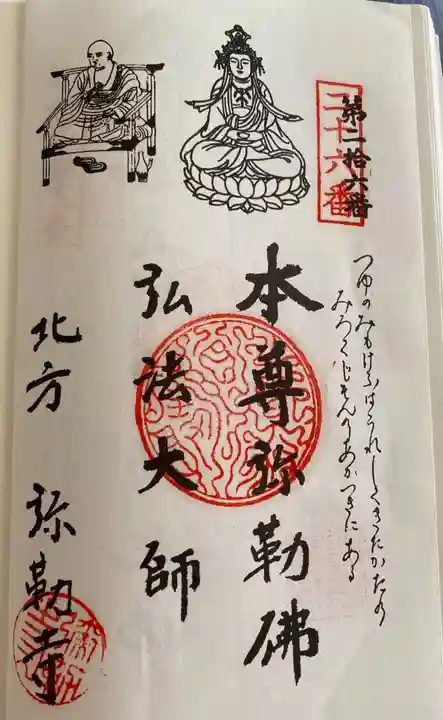 第二拾六番
二十六番
つゆのみもけふはうれしくきたかたの
みろくじそんのあかつきにある
本尊弥勒佛
弘法大師
北方 弥勒寺